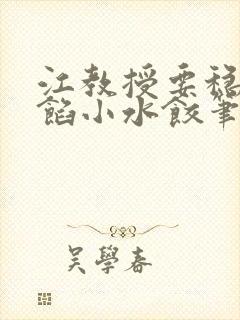 江教授要穩
餡小水餃筆
吳學春